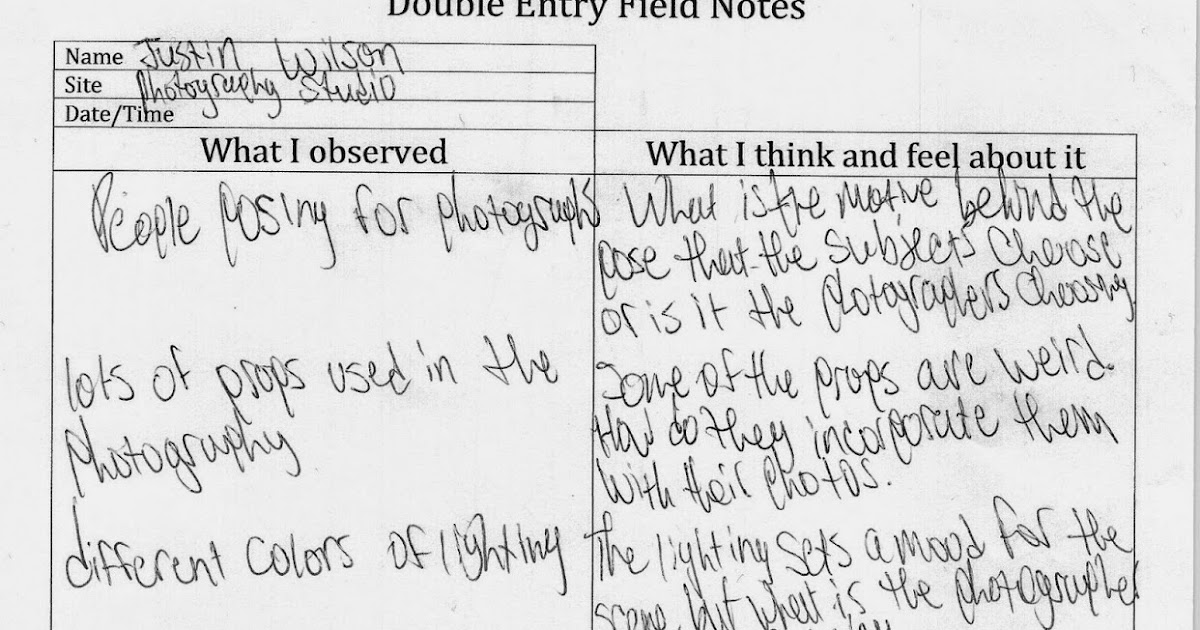 Double Entry Field Notes
Name Justin Wilson
Site Photography Studio
Date/Time
What I observed
People posing for photographs
lots of props used in the
photography
different colors of lighting
What I think and feel about it
What is the motive behind the
pose that the subjects choose
or is it the photographers choosing
Some of the props are weird.
How do they incorporate them
with their photos.
The lighting sets a mood for the
scene, but what is the photographer